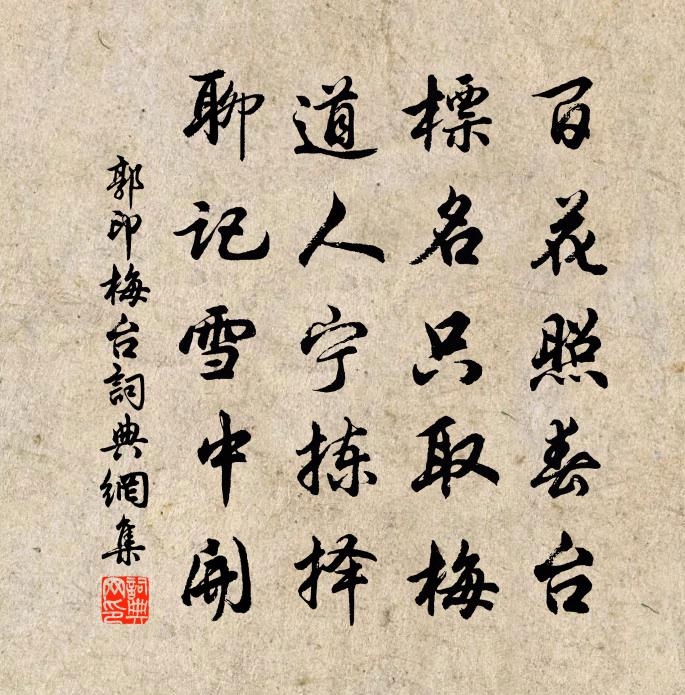 百花照春台
標名只取梅
道人宁拣择
聊记雪中開
郭印梅台詞典網集
詞典
网印